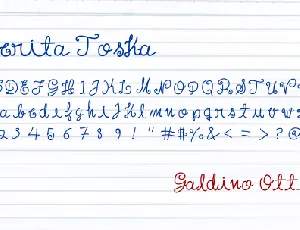 erita Toska
DEFGHIJKLMNOPQRSTUV
abcdefghijklmnopqrstuvw
2 3 4 5 6 7 8 9 ! " # $ % & < = > ? @
Galdino Ott